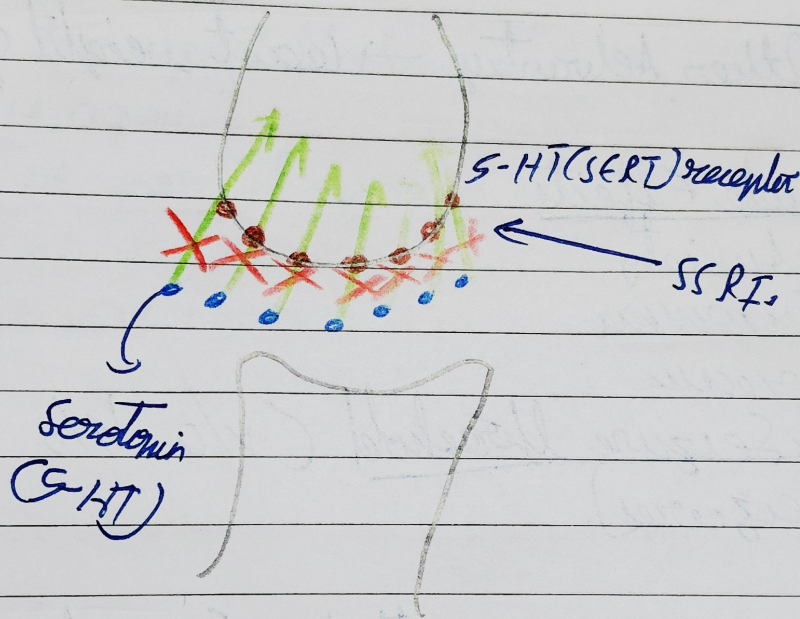 5-HT(SERT) receptor
SSRIs
Serotonin
(5-HT)